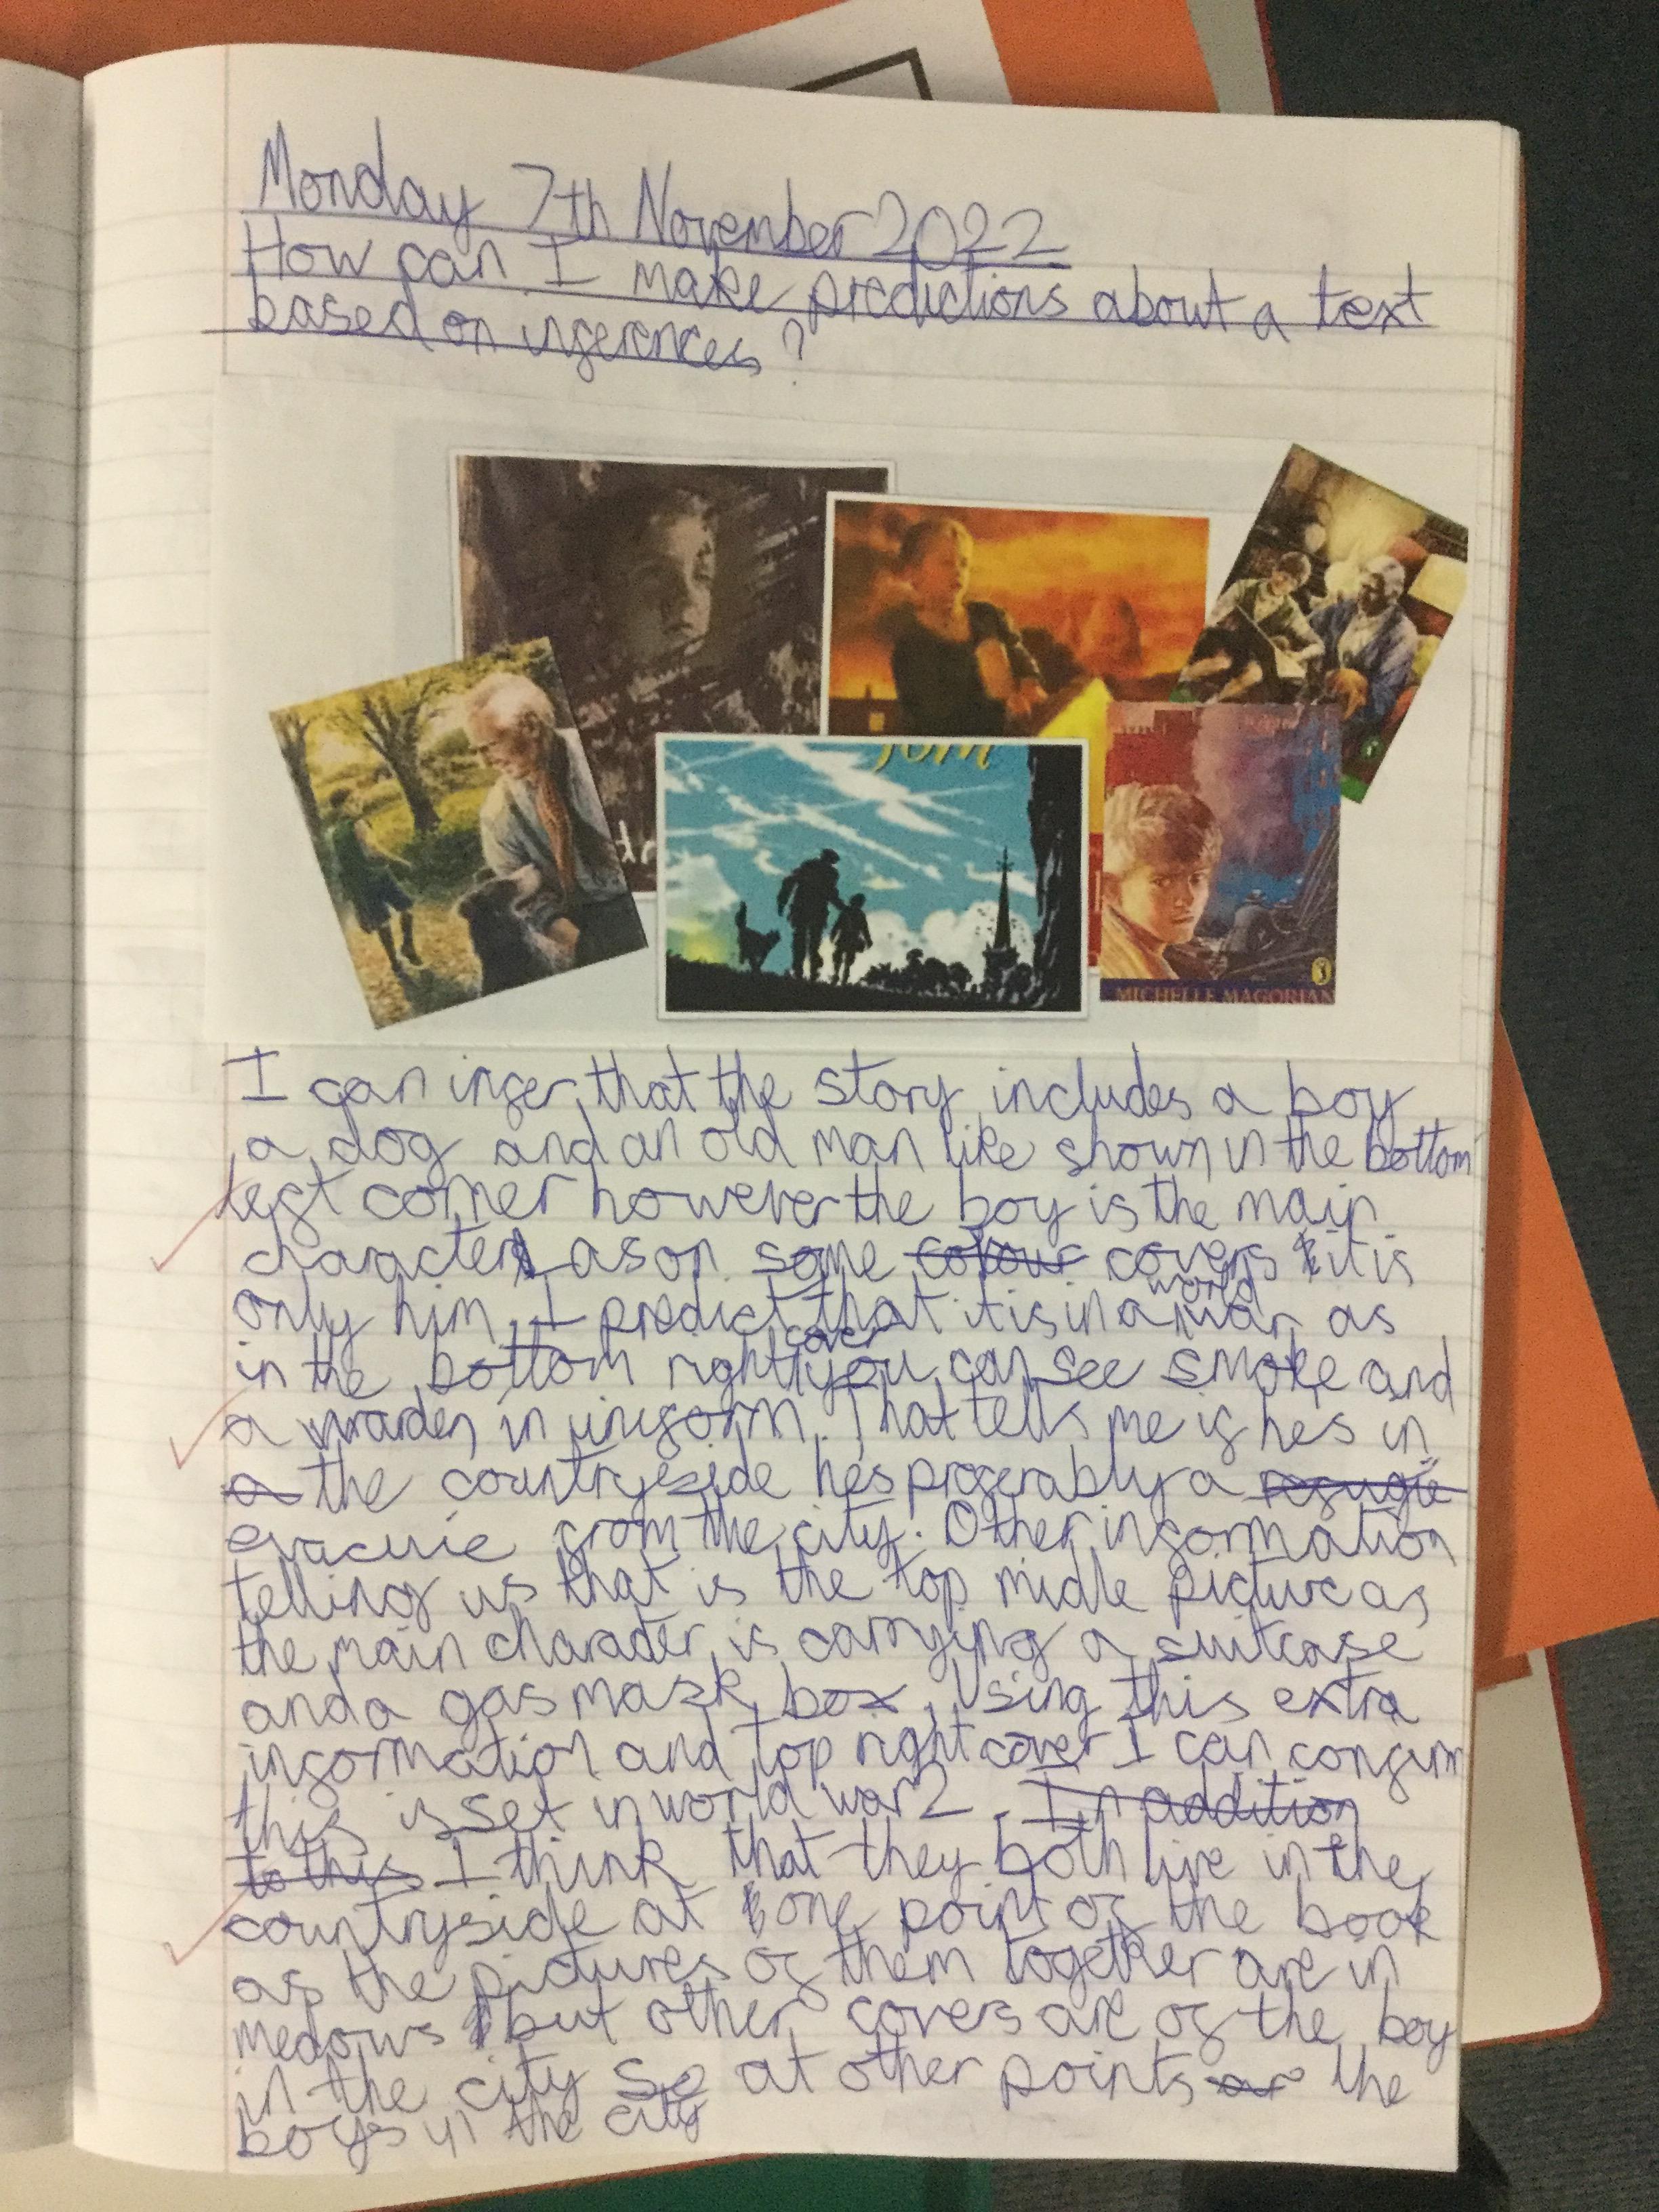 Monday 7th November 2022
How can I make predictions about a text
based on inferences?
Tom
MICHELLE MAGORIAN
I can infer that the story includes a boy
a dog and an old man like shown in the bottom
left corner however the boy is the main
character as on some colour covers it is
only him. I predict that it is in a world war as
in the bottom right cover you can see smoke and
a warden in uniform. That tells me if hes in
a the countryside hes proferably a refugie
evacuie from the city. Other information
telling us that is the top midle picture as
the main character is carrying a suitcase
and a gas mask box. Using this extra
information and top right cover I can confirm
this is set in world war 2. In addition
to this I think that they both live in the
countryside at one point of the book
as the pictures of them together are in
medows but other covers are of the boy
in the city so at other points the
boys in the city